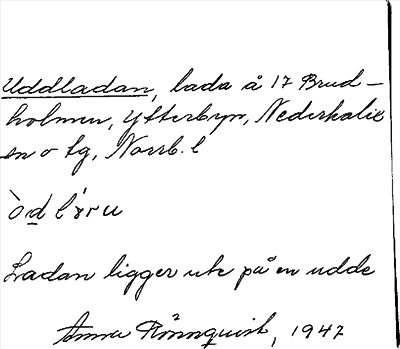 Uddladan, lada å 17 Brud-
holmen, Ytterbyn, Nederkalix
sn o tg, Norrb. l
òd̲ l´ɤru
Ladan ligger ute på en udde
Anna Rönnquist, 1947